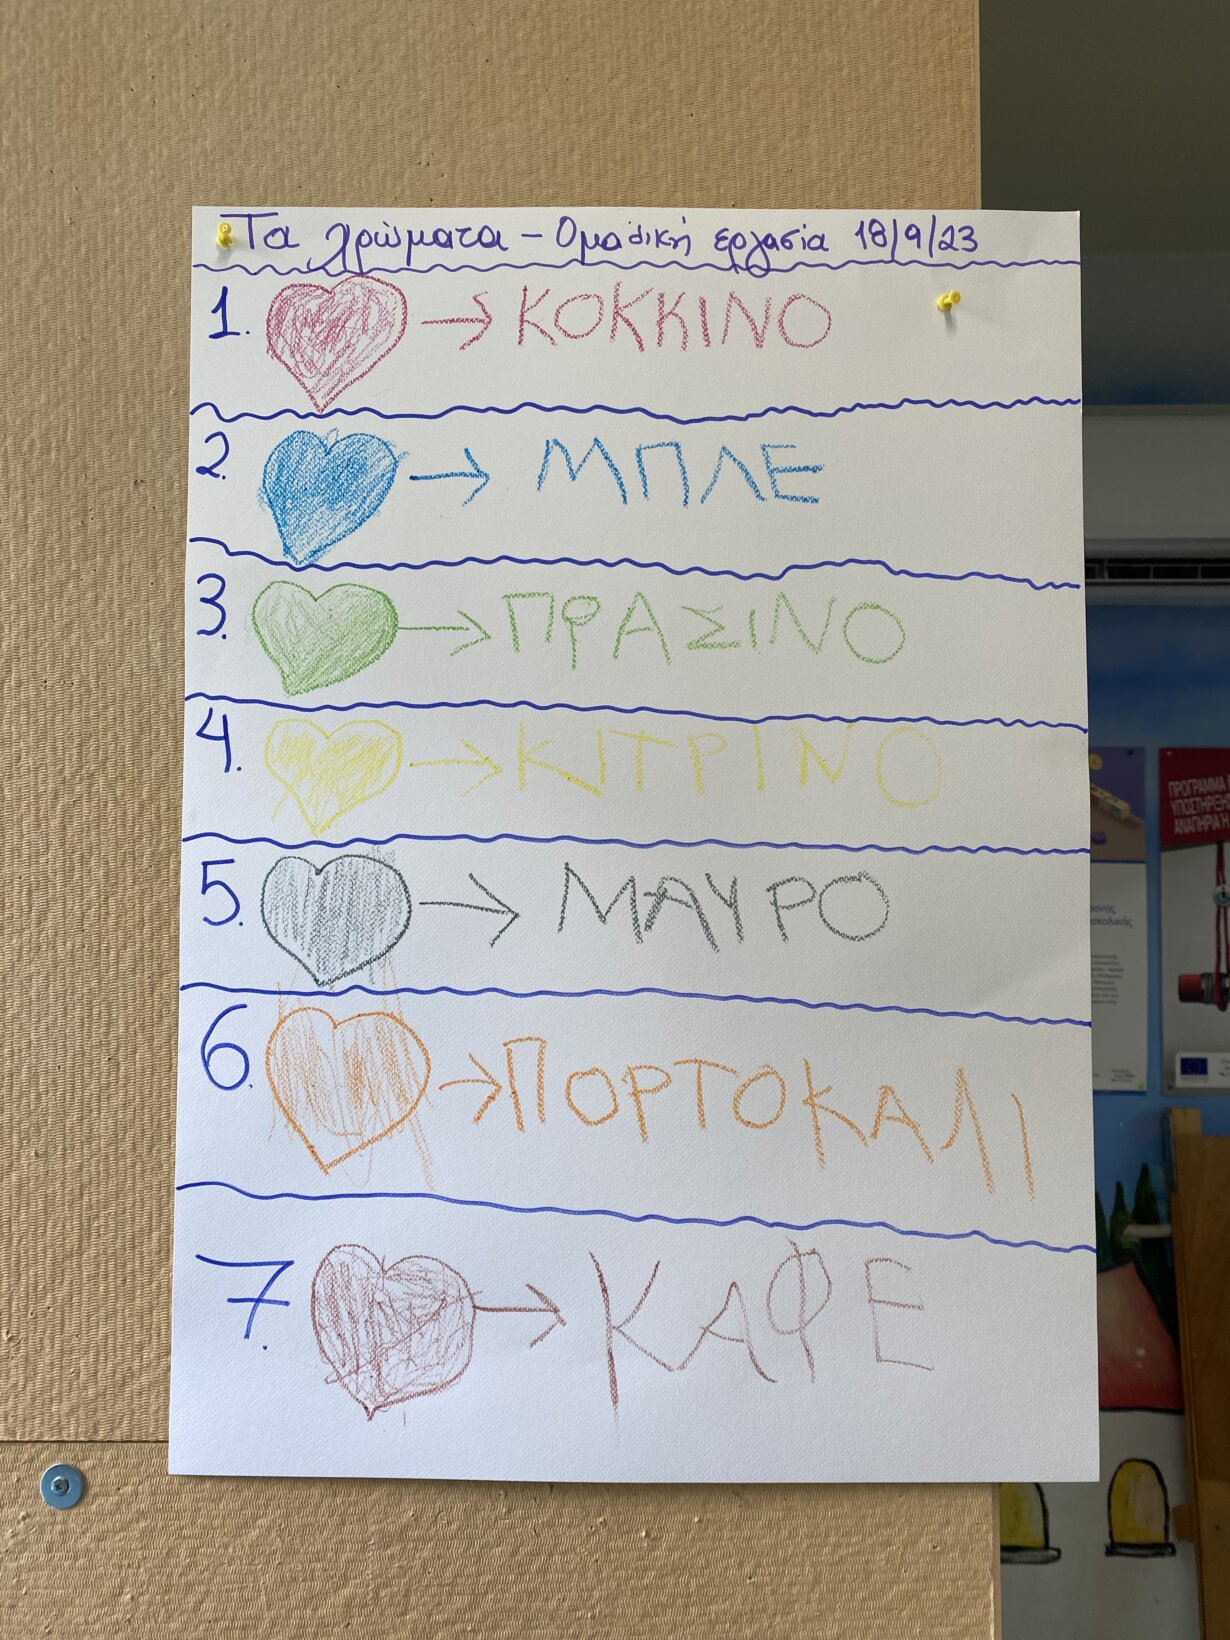 Τα χρώματα - Ομαδική εργασία 18/9/23
1. → ΚΟΚΚΙΝΟ
2. → ΜΠΛΕ
3. → ΠΡΑΣΙΝΟ
4. → ΚΙΤΡΙΝΟ
5. → ΜΑΥΡΟ
6. → ΠΟΡΤΟΚΑΛΙ
7. → ΚΑΦΕ
ΠΡΟΓΡΑΜΜΑ
ΥΠΟΣΤΗΡΙΞΗ
ΑΝΑΠΗΡΙΑ Ή